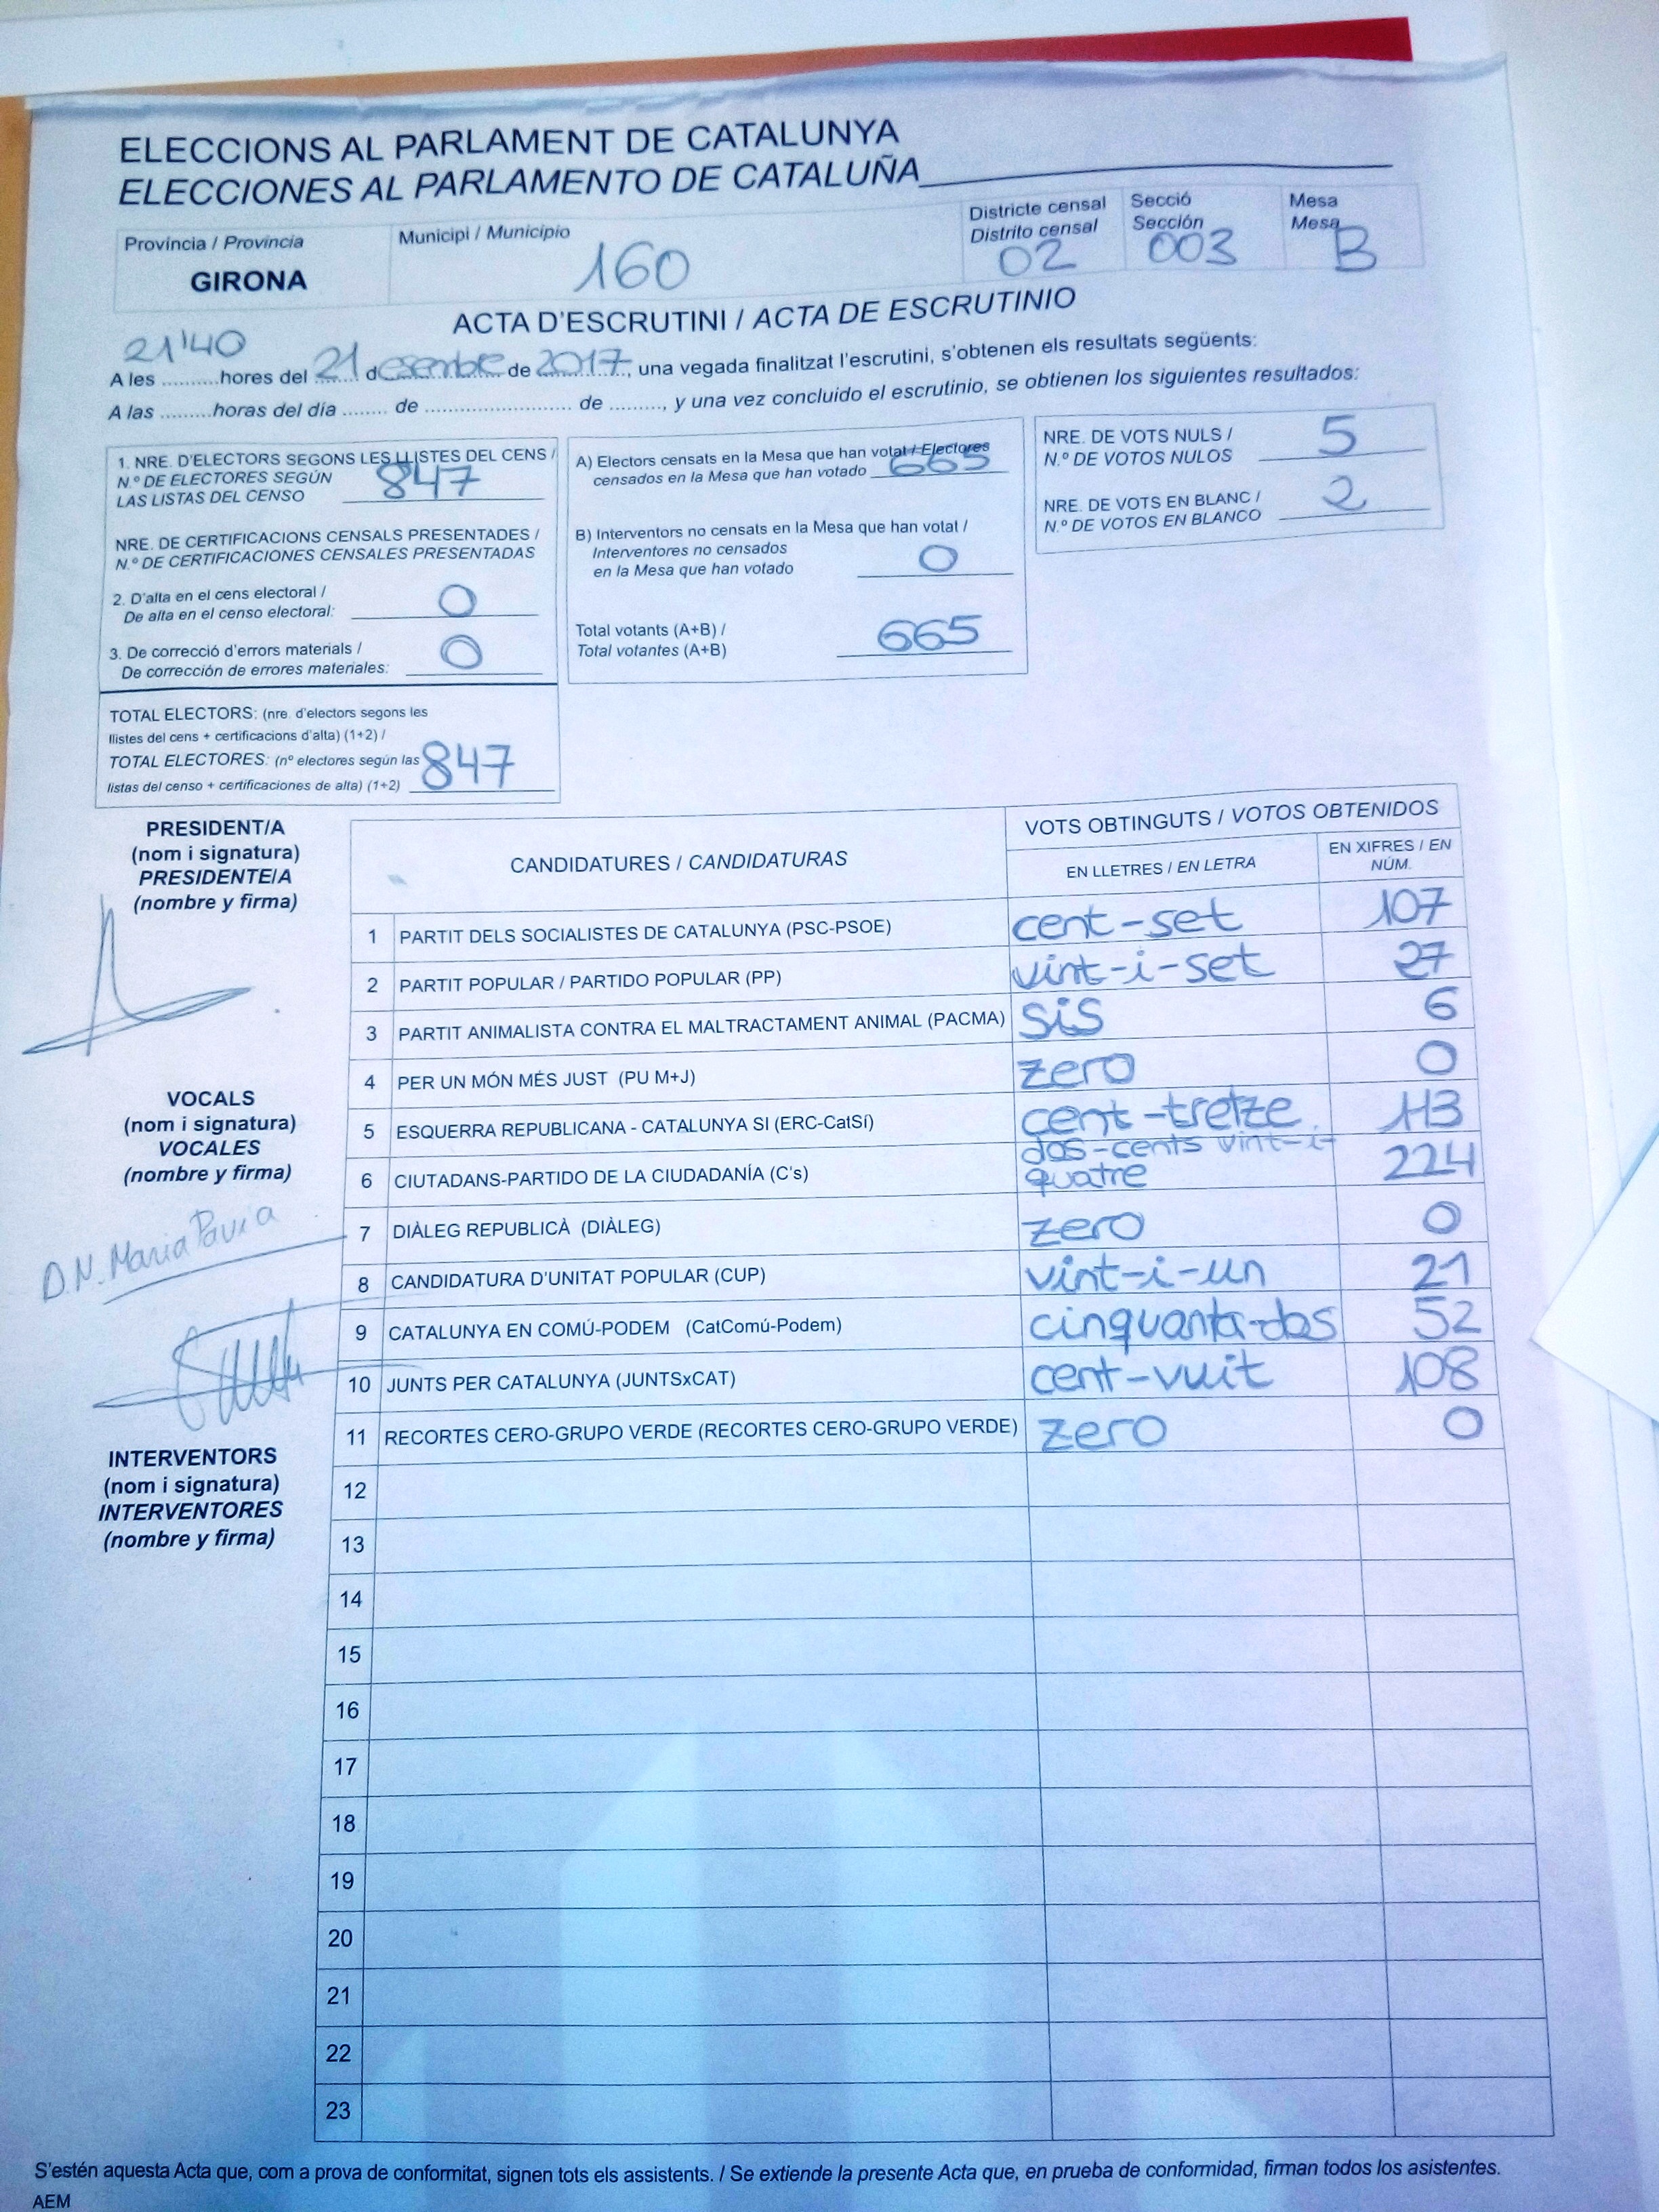 ELECCIONS AL PARLAMENT DE CATALUNYA
ELECCIONES AL PARLAMENTO DE CATALUÑA
Província / Provincia
GIRONA
Municipi / Municipio
160
Districte censal
Distrito censal
02
Secció
Sección
003
Mesa
Mesa
B
ACTA D'ESCRUTINI / ACTA DE ESCRUTINIO
21'40
A les ..........hores del 21 desembre de 2017, una vegada finalitzat l'escrutini, s'obtenen els resultats següents:
A las .........horas del día ........ de .......................... de ........., y una vez concluido el escrutinio, se obtienen los siguientes resultados:
1. NRE. D'ELECTORS SEGONS LES LLISTES DEL CENS /
N.º DE ELECTORES SEGÚN
LAS LISTAS DEL CENSO 847
NRE. DE CERTIFICACIONS CENSALS PRESENTADES /
N.º DE CERTIFICACIONES CENSALES PRESENTADAS
2. D'alta en el cens electoral /
De alta en el censo electoral: 0
3. De correcció d'errors materials /
De corrección de errores materiales: 0
TOTAL ELECTORS: (nre. d'electors segons les
llistes del cens + certificacions d'alta) (1+2) /
TOTAL ELECTORES: (nº electores según las
listas del censo + certificaciones de alta) (1+2) 847
A) Electors censats en la Mesa que han votat / Electores
censados en la Mesa que han votado 665
B) Interventors no censats en la Mesa que han votat /
Interventores no censados
en la Mesa que han votado 0
Total votants (A+B) /
Total votantes (A+B) 665
NRE. DE VOTS NULS /
N.º DE VOTOS NULOS 5
NRE. DE VOTS EN BLANC /
N.º DE VOTOS EN BLANCO 2
PRESIDENT/A
(nom i signatura)
PRESIDENTE/A
(nombre y firma)
VOCALS
(nom i signatura)
VOCALES
(nombre y firma)
D.N. Maria Pavia
INTERVENTORS
(nom i signatura)
INTERVENTORES
(nombre y firma)
CANDIDATURES / CANDIDATURAS
VOTS OBTINGUTS / VOTOS OBTENIDOS
EN LLETRES / EN LETRA
EN XIFRES / EN
NÚM.
1 PARTIT DELS SOCIALISTES DE CATALUNYA (PSC-PSOE) cent-set 107
2 PARTIT POPULAR / PARTIDO POPULAR (PP) vint-i-set 27
3 PARTIT ANIMALISTA CONTRA EL MALTRACTAMENT ANIMAL (PACMA) sis 6
4 PER UN MÓN MÉS JUST (PU M+J) zero 0
5 ESQUERRA REPUBLICANA - CATALUNYA SI (ERC-CatSí) cent-tretze 113
6 CIUTADANS-PARTIDO DE LA CIUDADANÍA (C's) dos-cents vint-i-
quatre 224
7 DIÀLEG REPUBLICÀ (DIÀLEG) zero 0
8 CANDIDATURA D'UNITAT POPULAR (CUP) vint-i-un 21
9 CATALUNYA EN COMÚ-PODEM (CatComú-Podem) cinquanta-dos 52
10 JUNTS PER CATALUNYA (JUNTSxCAT) cent-vuit 108
11 RECORTES CERO-GRUPO VERDE (RECORTES CERO-GRUPO VERDE) zero 0
12
13
14
15
16
17
18
19
20
21
22
23
S'estén aquesta Acta que, com a prova de conformitat, signen tots els assistents. / Se extiende la presente Acta que, en prueba de conformidad, firman todos los asistentes.
AEM